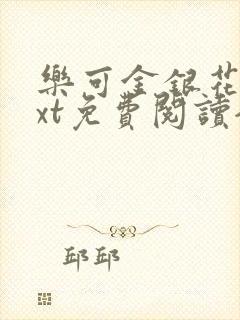 樂可金銀花
xt免費閱讀
邱邱